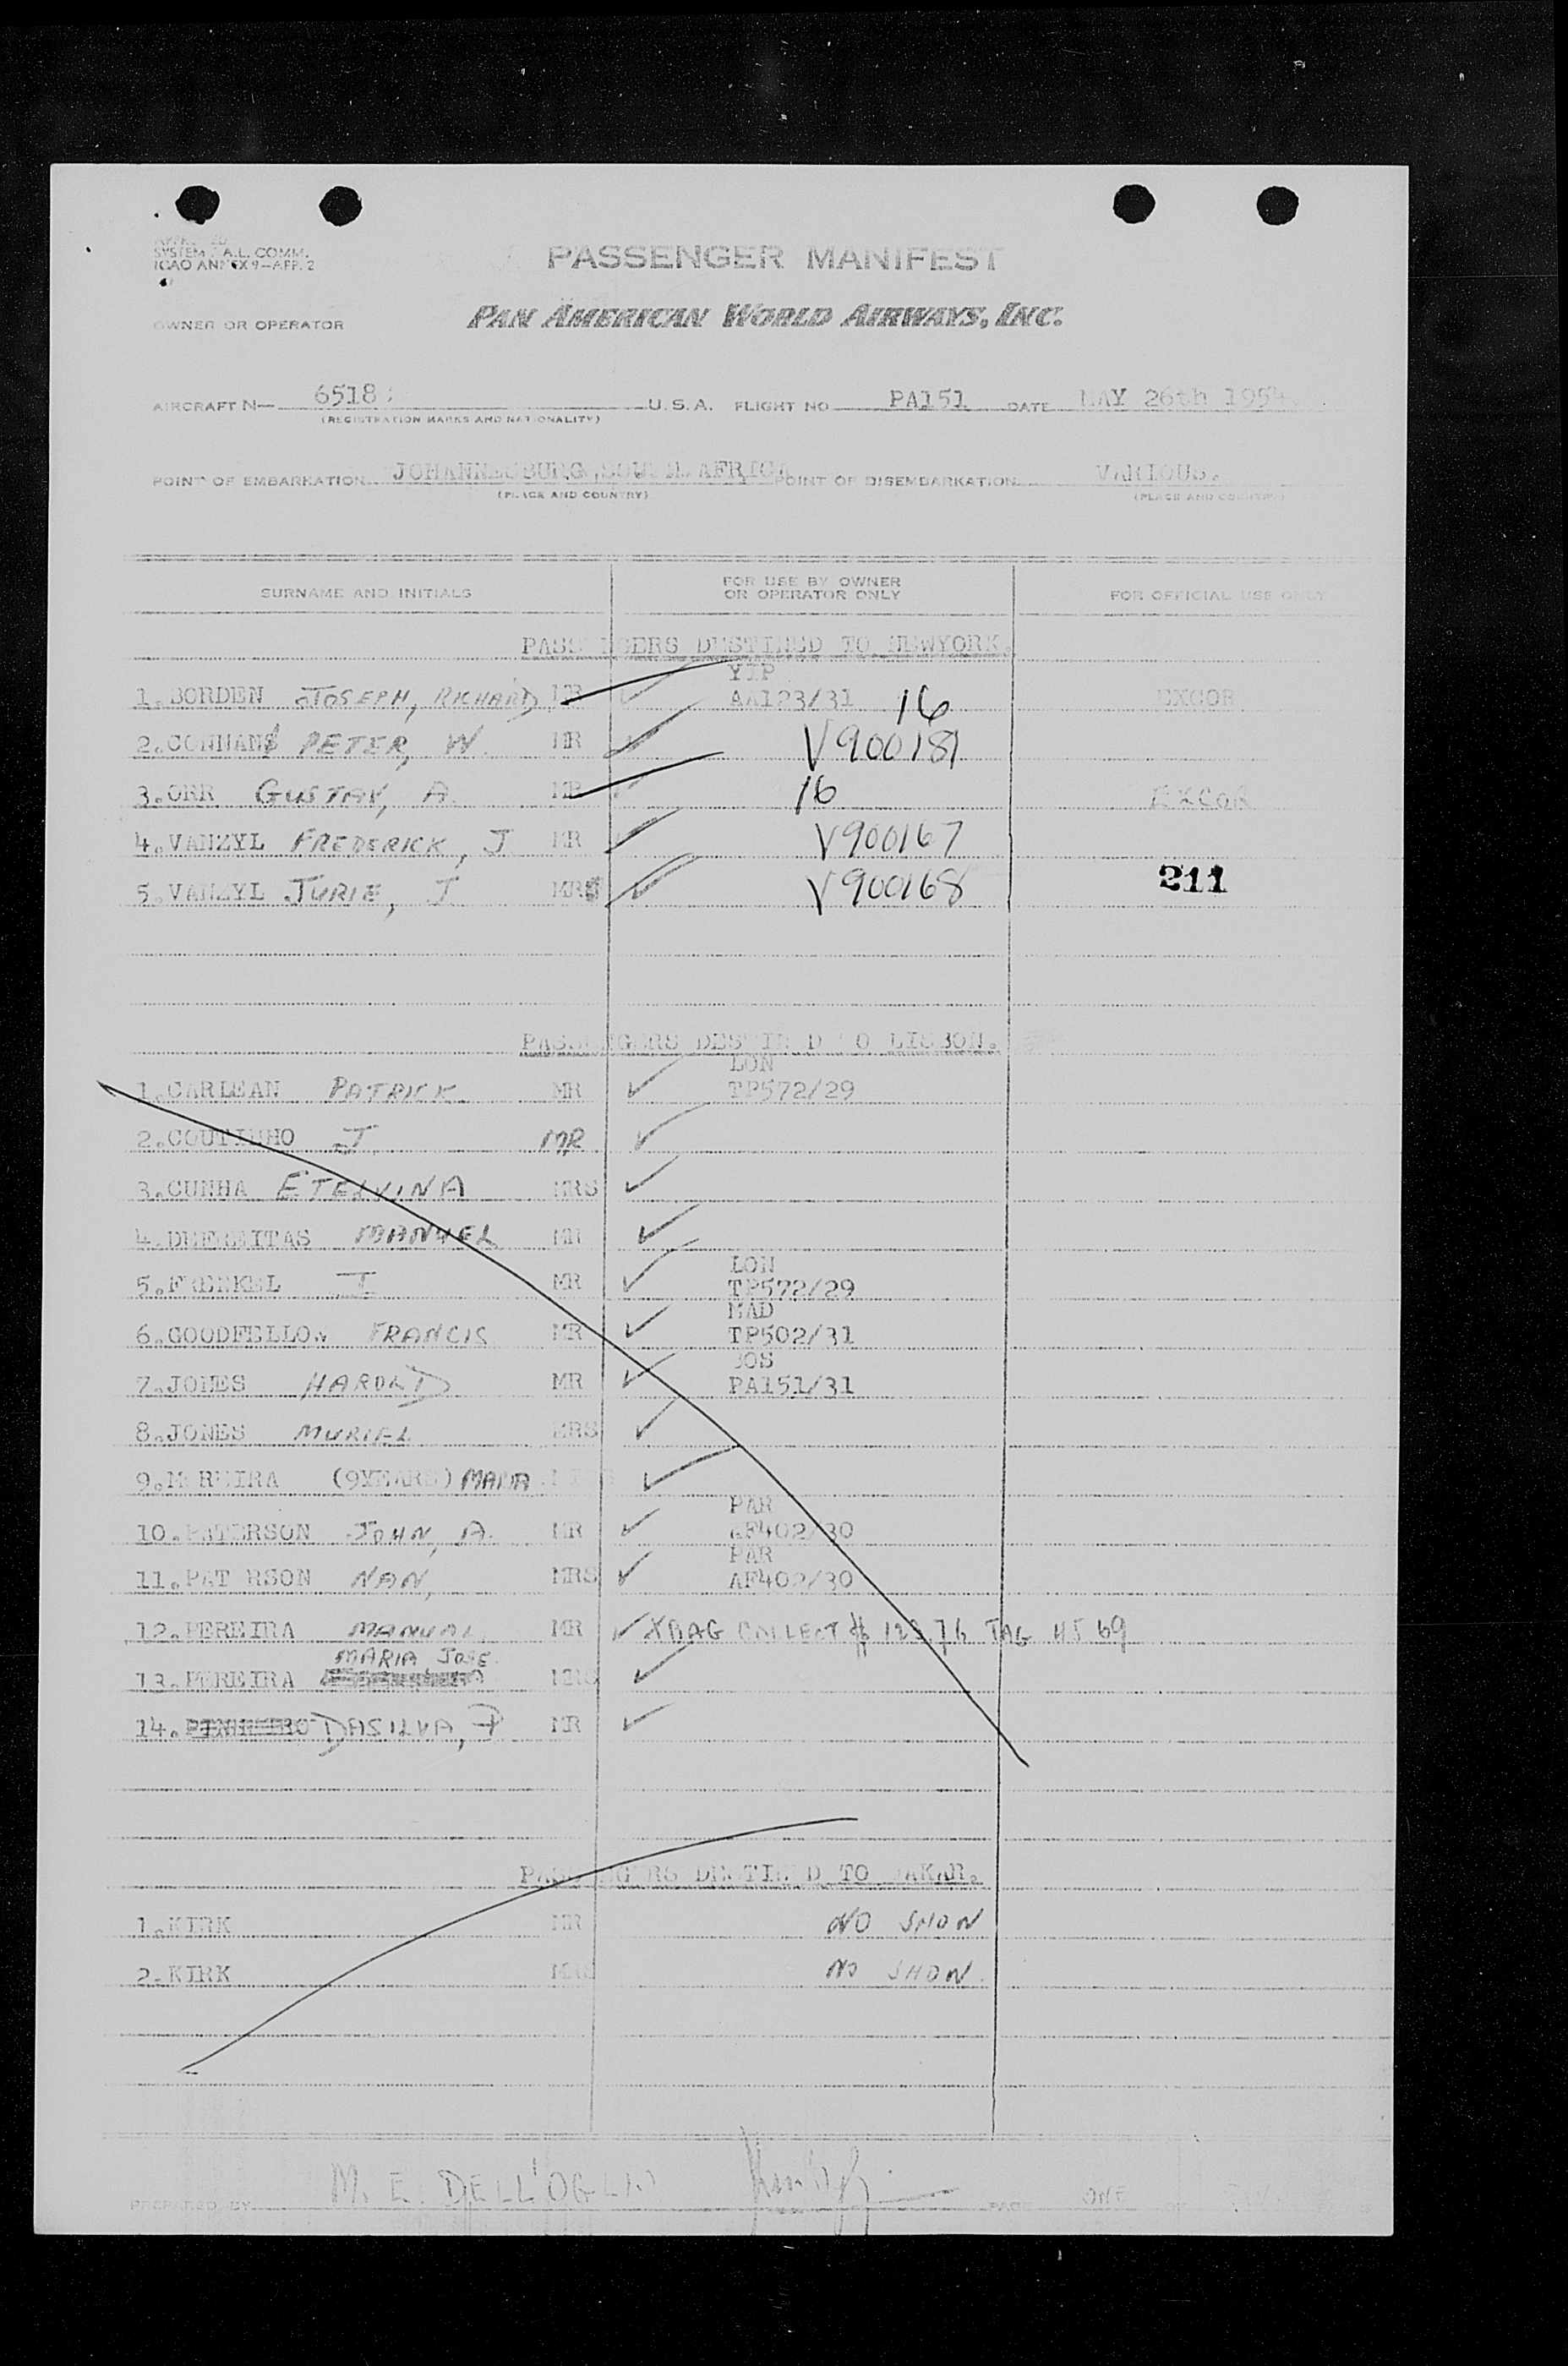 SYSTEM A.L. COMM.
ICAO ANNEX 9—APP. 2
PASSENGER MANIFEST
OWNER OR OPERATOR PAN AMERICAN WORLD AIRWAYS, INC.
AIRCRAFT N— 6518 U.S.A. FLIGHT NO PA151 DATE MAY 26th 1954
(REGISTRATION MARKS AND NATIONALITY)
POINT OF EMBARKATION JOHANNESBURG, SOUTH AFRICA POINT OF DISEMBARKATION VARIOUS.
(PLACE AND COUNTRY) (PLACE AND COUNTRY)
SURNAME AND INITIALS FOR USE BY OWNER OR OPERATOR ONLY FOR OFFICIAL USE ONLY
PASSENGERS DESTINED TO NEWYORK.
YIP
1.BORDEN JOSEPH, RICHARD MR AA123/31 16 EXCOR
2. PETER, W. MR V900181
3.ORR GUSTAV, A. MR 16 EXCOR
4.VANZYL FREDERICK, J MR V900167
5.VANZYL JURIE, J MRS V900168 211
PASSENGERS DESTINED TO LISBON.
LON
1.CARLEAN PATRICK MR TP572/29
2.COUTINHO J. MR
3.CUNHA ETELVINA MRS
4.DEFREITAS MANUEL MR
LON
5.FRENKEL I MR TP572/29
MAD
6.GOODFELLOW FRANCIS MR TP502/31
BOS
7.JONES HAROLD MR PA151/31
8.JONES MURIEL MRS
9. (9YEARS) MARIA
PAR
10.PATERSON JOHN, A. MR AF402/30
PAR
11.PATERSON NAN, MRS AF402/30
12.PEREIRA MANUAL MR XBAG COLLECT TAG 4569
MARIA JOSE
13.PEREIRA MRS
14. DASILVA, P MR
PASSENGERS DESTINED TO DAKAR.
1.KIRK MR NO SHOW
2.KIRK MRS NO SHOW
PREPARED BY M. E. DELL'OGLIO PAGE ONE OF